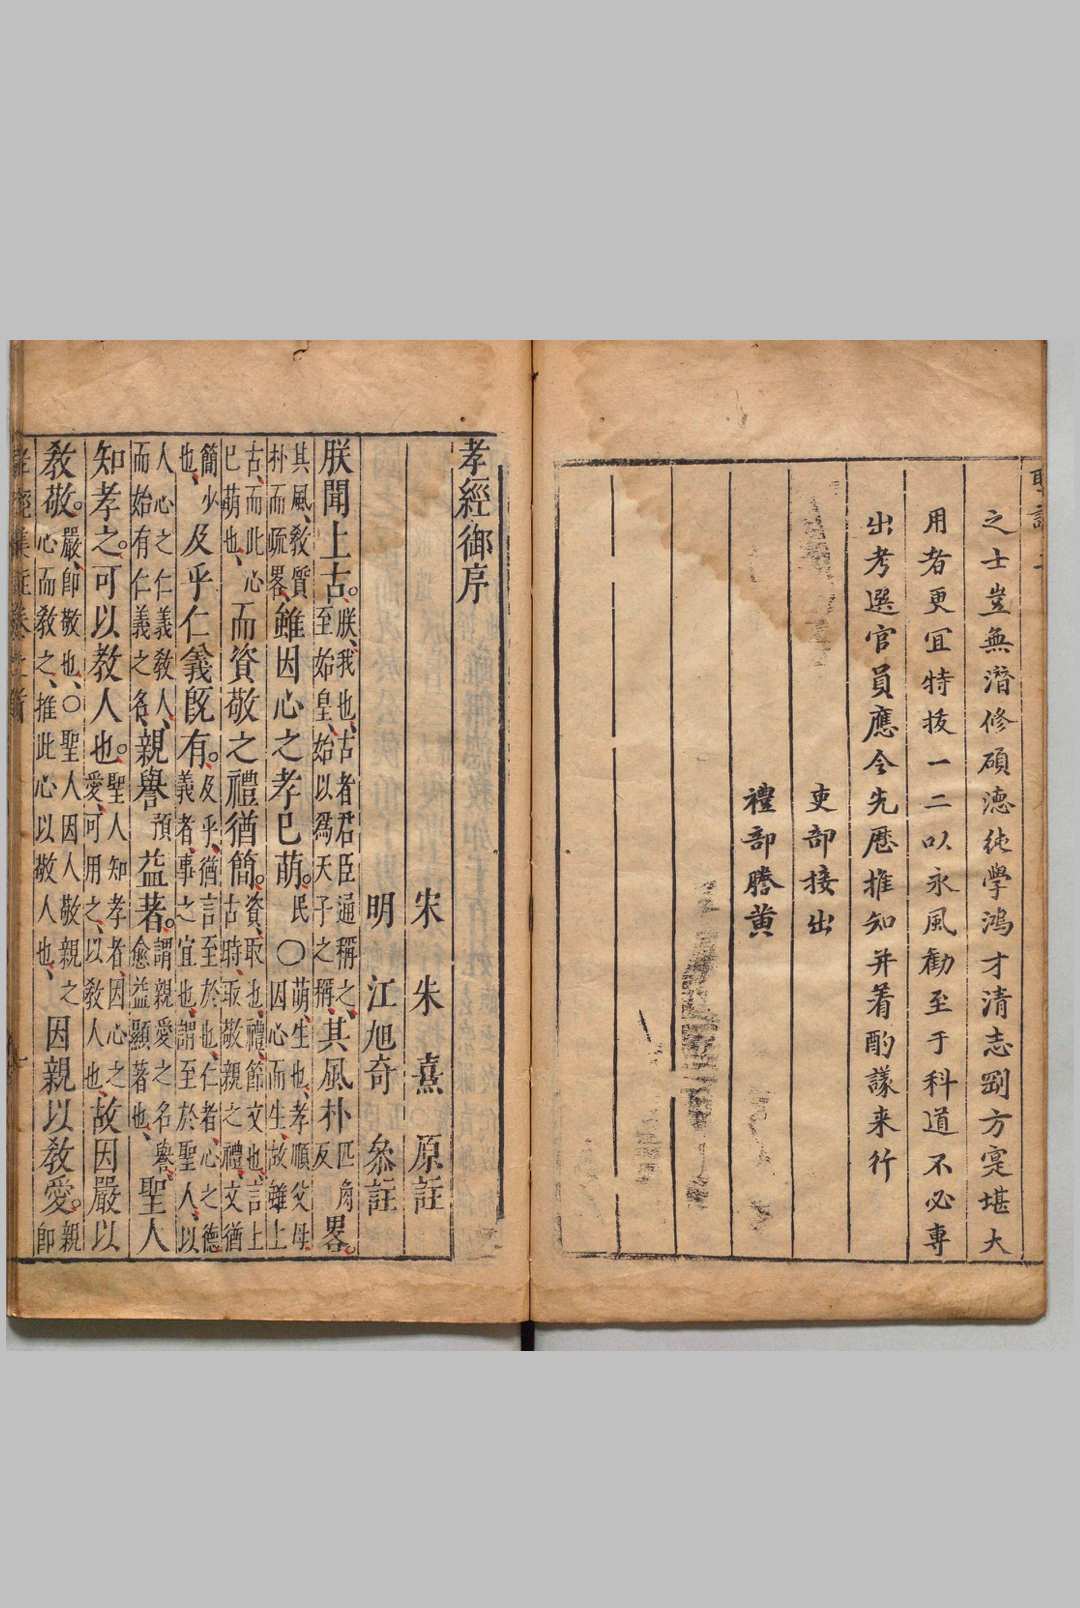 之士豈無潛修碩德純學鴻才清志剛方寔堪大
用者更宜特拔一二以永風勸至于科道不必專
出考選官員應令先歷推知并着酌議来行
吏部接出
禮部謄黄
孝經御序
宋 朱熹 原註
明 江旭奇 叅註
朕聞上古。朕、我也、古者君臣通稱之、至始皇、始以爲天子之稱、其風朴匹角反畧。
其風、敎質朴而疏畧、雖因心之孝已萌。民〇萌、生也、孝順父母、因心而生、故雖上
古、而此心已萌也、而資敬之禮猶簡。資、取也、禮、節文也、言上古時、取敬親之禮、文猶
簡少也、及乎仁義旣有。及乎、猶言至於也、仁者、心之德、義者、事之宜也、謂至於聖人、以
人心之仁義敎人、而始有仁義之名、親譽預益著。謂親愛之名譽、愈益顯著也、聖人
知孝之。可以敎人也。聖人知孝者、因心之愛、可用之、以敎人也、故因嚴以
敎敬。嚴、卽敬也、〇聖人因人敬親之心而敎之、推此心以敬人也、因親以敎愛。親卽